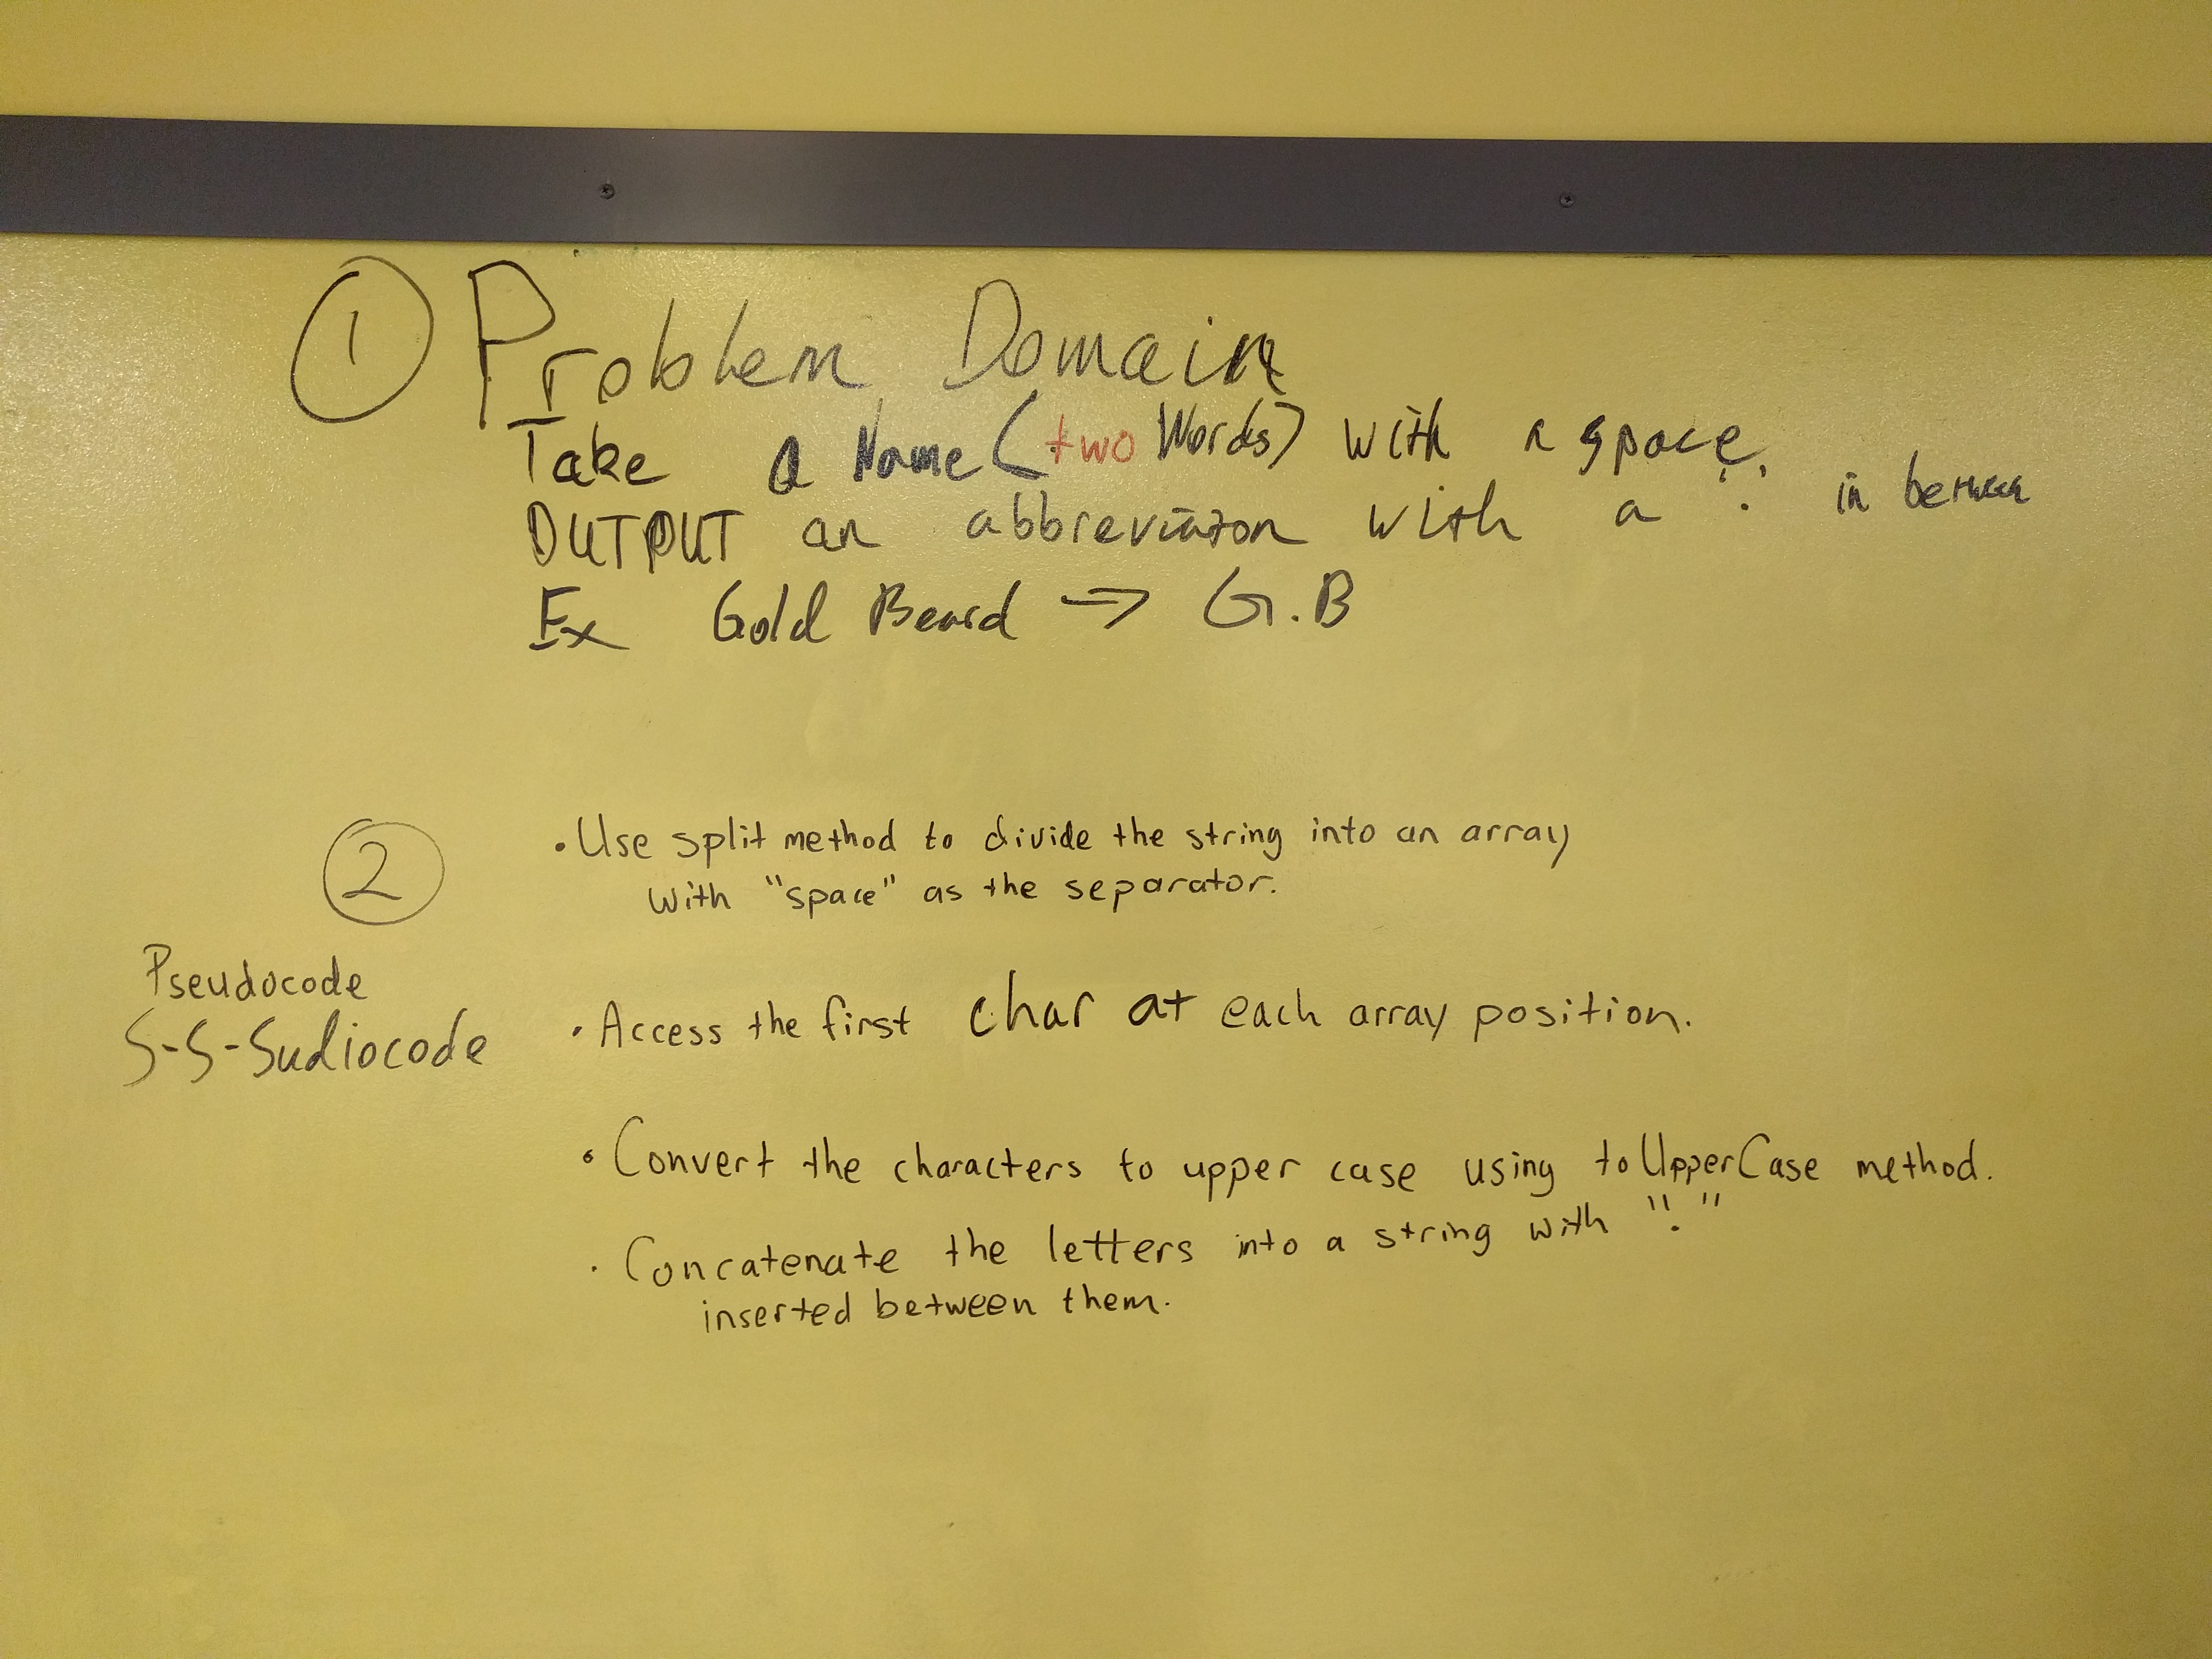 ① Problem Domain
Take a Name (two Words) with a space.
OUTPUT an abbreviaton with a '.' in between
Ex Gold Beard => G.B
②
• Use split method to divide the string into an array
with "space" as the separator.
Pseudocode
S-S-Sudiocode
• Access the first char at each array position.
• Convert the characters to upper case using toUpperCase method.
• Concatenate the letters into a string with "."
inserted between them.